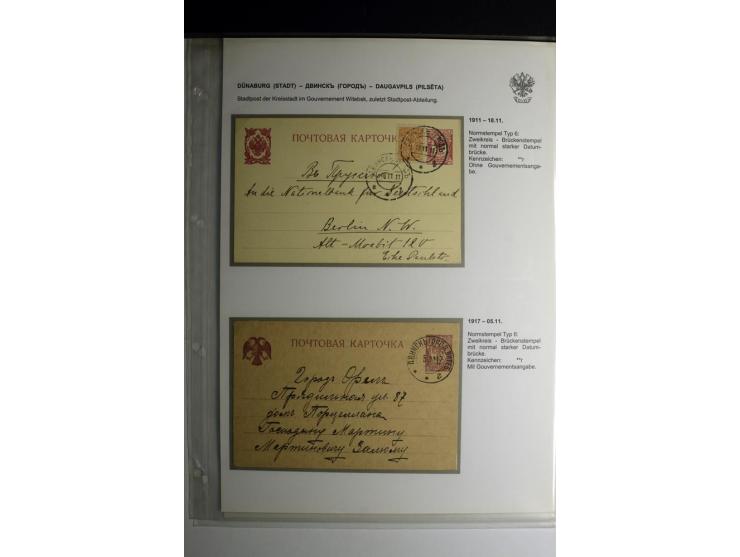 DÜNABURG (STADT) – ДВИНСКЪ (ГОРОДЪ) – DAUGAVPILS (PILSĒTA)
Stadtpost der Kreisstadt im Gouvernement Witebsk, zuletzt Stadtpost-Abteilung.
1911 – 18.11.
Normstempel Typ 6:
Zweikreis - Brückenstempel
mit normal starker Datum-
brücke.
Kennzeichen:
Ohne Gouvernementsanga-
be.
ПОЧТОВАЯ КАРТОЧКА
18 11 11
Въ Пруссію
An die Nationalbank für Deutschland
Berlin N. W.
Alt-Moabit
1917 – 05.11.
Normstempel Typ
Zweikreis - Brückenstempel
mit normal starker Datum-
brücke.
Kennzeichen:
Mit Gouvernementsangabe.
ПОЧТОВАЯ КАРТОЧКА
Городъ Орелъ
Прядильная ул. 87
домъ Порцеллана
Господину Мартину
Мартиновичу Залкому